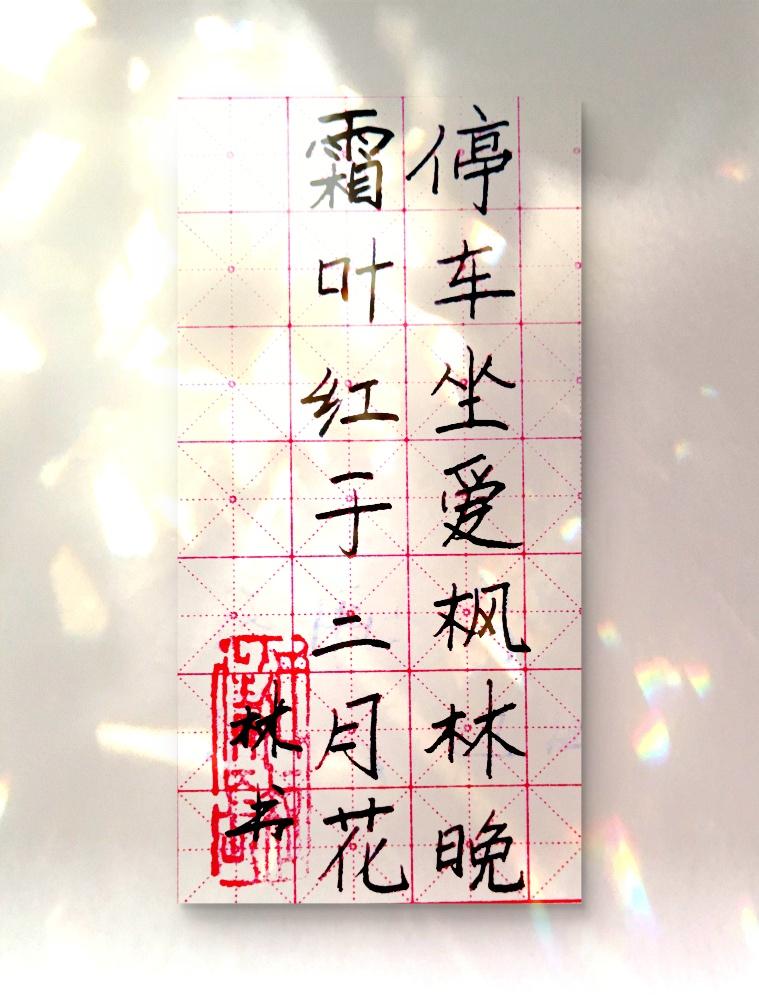 停车坐爱枫林晚
霜叶红于二月花
林书